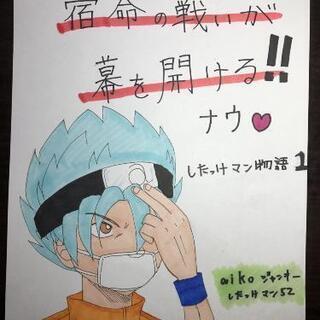 宿命の戦いが
幕を開ける!!
ナウ♥
したっけマン物語1
aiko ジャンオー
したっけマン52